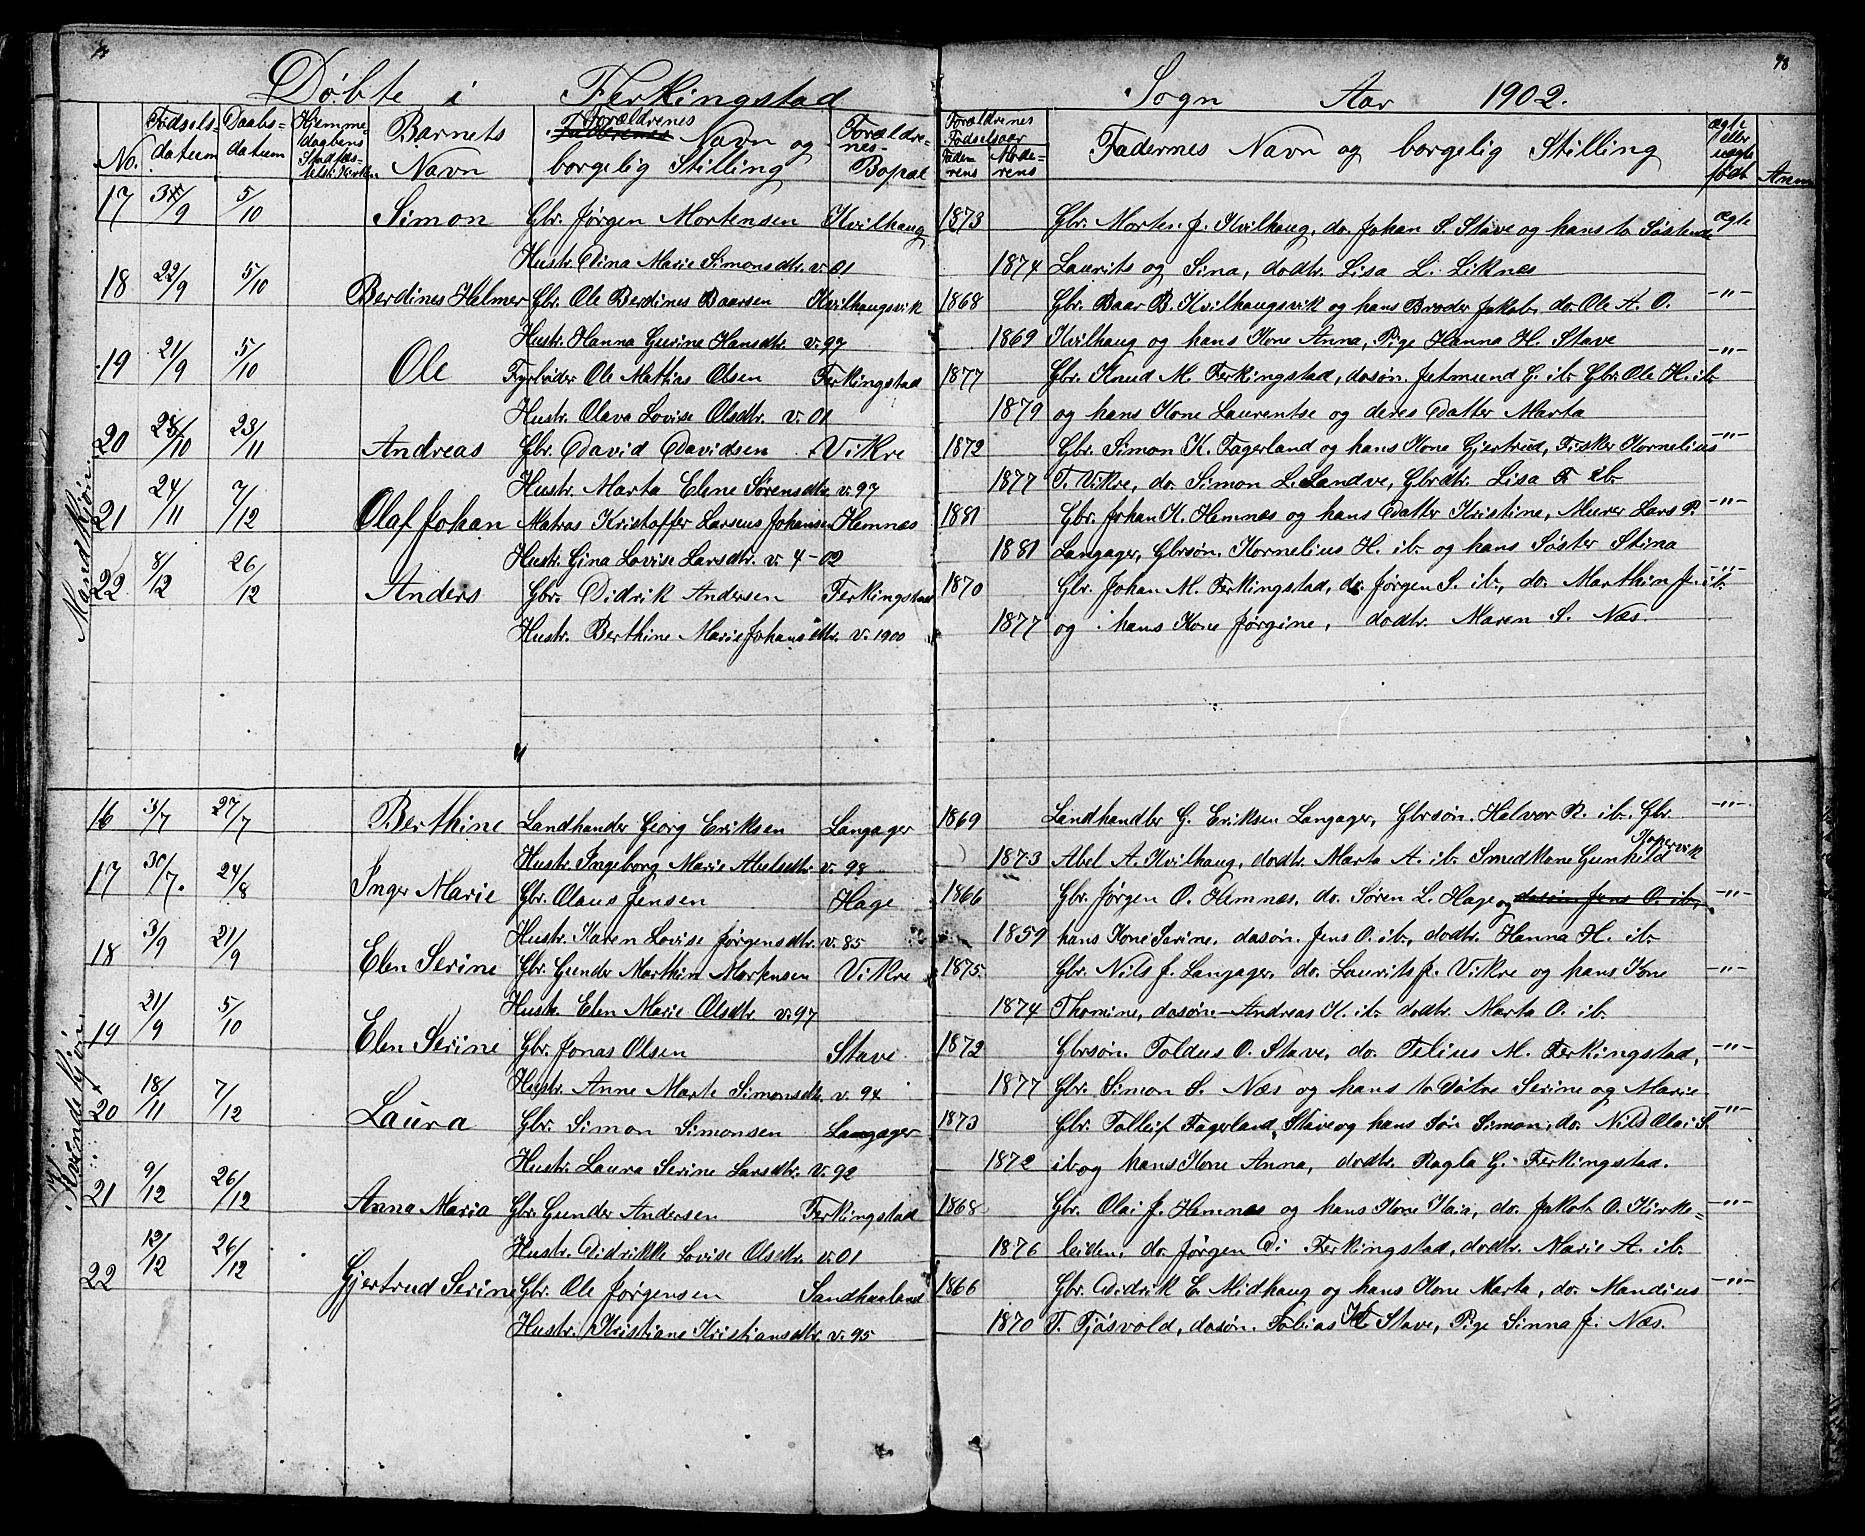 48
Døbte i Ferkingstad Sogn Aar 1902.
No. Fødsels-datum Daabs-datum Hjemme-daabens Stadfæs-telse i Kirken Barnets Navn Forældrenes Navn og borgelig Stilling Forældre-nes Bopæl Forældrenes Fødselsaar Fade-rens Mode-rens Fadernes Navn og borgelig Stilling ægte eller uægte født Anm
Mandkjøn.
17 /9 5/10 Simon Gbr. Jørgen Mortensen Kvilhaug 1873 Gbr. Morten J. Kvilhaug, do. Johan S. Stave og hans to Søstende ægte
Hustr. Dina Marie Simonsdtr. v. 01 1874 Laurits og Sina, dodtr. Lisa L. Liknes
18 22/9 5/10 Berdines Helmer Gbr. Ole Berdines Baarsen Kvilhaugsvik 1868 Gbr. Baar B. Kvilhaugsvik og hans Broder Jakob, do. Ole A. O. -"-
Hustr. Hanna Gurine Hansdtr. v. 97 1869 Kvilhaug og hans Kone Anna, Pige Hanna H. Stave
19 21/9 5/10 Ole Fyrbøder Ole Mathias Olsen Ferkingstad 1877 Gbr. Knud M. Ferkingstad, dosøn. Jetmund G. ib. Gbr. Ole H. ib. -"-
Hustr. Olava Lovise Olsdtr. v. 01 1879 og hans Kone Laurentse og deres Datter Marta
20 /10 23/11 Andreas Gbr. David Davidsen Vikre 1872 Gbr. Simon K. Fagerland og hans Kone Gjertrud, Fisker Kornelius -"-
Hustr. Marta Elene Sørensdtr. v. 97 1877 T. Vikre, do. Simon L. Sandve, Gbrdtr. Lisa F. ib.
21 24/11 7/12 Olaf Johan Matros Kristoffer Larseus Johansen Hemnes 1881 Gbr. Johan K. Hemnes og hans Datter Kristine, Murer Lars P. -"-
Hustr. Gina Lovise Larsdtr. v. 4-02 1881 Langager, Gbrsøn. Kornelius H. ib. og hans Søster Stina
22 8/12 26/12 Anders Gbr. Didrik Andersen Ferkingstad 1870 Gbr. Johan M. Ferkingstad, do. Jørgen S. ib., do. Marthin J. ib. -"-
Hustr. Berthine Marie Johansdtr. v. 1900 1877 og hans Kone Jørgine, dodtr. Maren S. Næs.
Kvindekjøn.
16 3/7 27/7 Berthine Landhander Georg Eriksen Langager 1869 Landhandler G. Eriksen Langager, Gbrsøn. Halvor R. ib. Gbr. -"-
Hustr. Ingeborg Marie Abelsdtr. v. 98 1873 Abel A. Kvilhaug, dodtr. Marta A. ib. Smedkone Gunhild Kopervik
17 30/7. 24/8 Inger Marie Gbr. Olaus Jensen Hage 1866 Gbr. Jørgen O. Hemnes, do. Søren L. Hage og dosøn Jens O. ib. -"-
Hustr. Karen Lovise Jørgensdtr. v. 85 1859 hans Kone Serine, dosøn. Jens O. ib., dodtr. Hanna H. ib.
18 3/9 21/9 Elen Serine Gbr. Gunder Marthin Mortensen Vikre 1875 Gbr. Nils J. Langager, do. Laurits J. Vikre og hans Kone -"-
Hustr. Elen Marie Olsdtr. v. 97 1874 Thomine, dosøn. Andreas K. ib. dodtr. Marta O. ib.
19 21/9 5/10 Elen Serine Gbr. Jonas Olsen Stave 1872 Gbrsøn. Toldus O. Stave, do. Telius M. Ferkingstad, -"-
Hustr. Anne Marte Simonsdtr. v. 94 1877 Gbr. Simon S. Næs og hans to Døtre Serine og Marie
20 18/11 7/12 Laura Gbr. Simon Simonsen Langager 1873 Gbr. Tolleif Fagerland, Stave og hans Søn Simon, do. Nils Olai S. -"-
Hustr. Laura Serine Larsdtr. v. 92 1872 ib og hans Kone Anna, dodtr. Ragla G. Ferkingstad.
21 9/12 26/12 Anna Maria Gbr. Gunder Andersen Ferkingstad 1868 Gbr. Olai J. Hemnes og hans Kone Kaia, do. Jakob O. Kirke= -"-
Hustr. Didrikke Lovise Olsdtr. v. 01 1876 leiden, do. Jørgen Di Ferkingstad, dodtr. Marie A. ib.
22 12/12 26/12 Gjertrud Serine Gbr. Ole Jørgensen Sandhaaland 1866 Gbr. Didrik E. Midhaug og hans Kone Marta, do. Mandius -"-
Hustr. Kristiane Kristiansdtr. v. 95 1870 T. Tjøsvold, dosøn. Tobias Stave, Pige Sinna J. Næs.